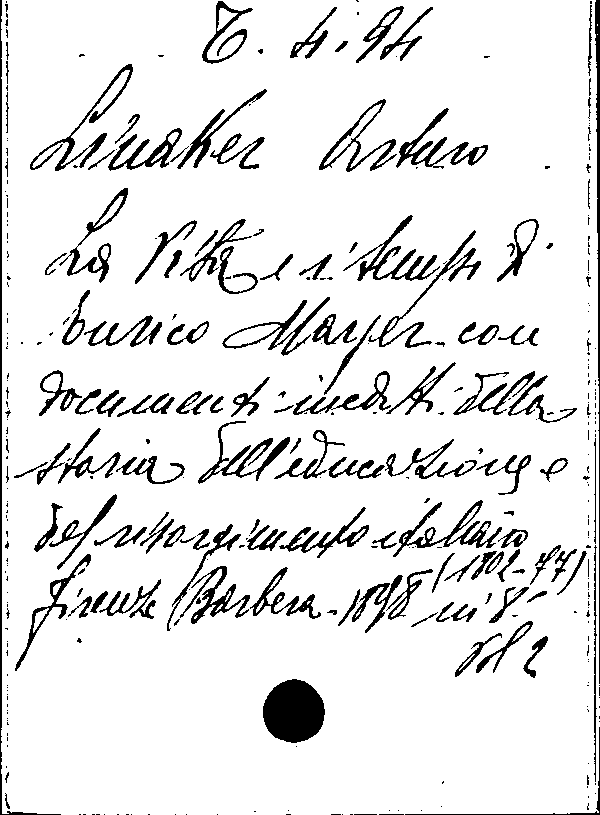 T. 4. 94
Linaker Arturo
La Vita e i tempi di
Enrico Mayer con
documenti inediti della
storia dell'educazione e
del risorgimento italiano
(1802-77)
Firenze Barbera - 1898 in 8º
vol 2